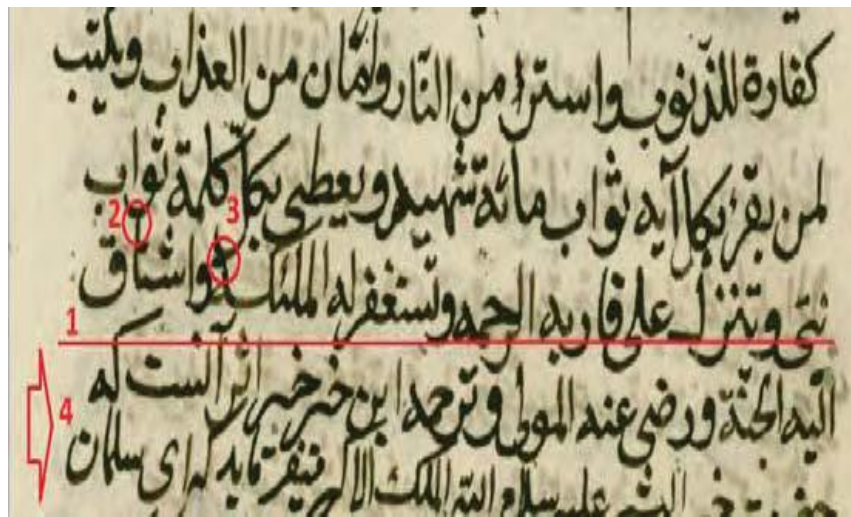 كفارة للذنوب واسترا من النار وامّان من العذاب ويكتب
لمن يقرء بكل آيه ثواب مائة شهيد ويعطى بكلّ كلمة ثواب
2 3
نبى وتنزل على قاريه الرحمه وتستغفر له الملئكة واشتاق
1
اليه الجنّة ورضى عنه المولى وترجمه اين خبر خبر اثر آنست كه
4
حضرت خير البشر عليه سلام الله الملك الاكبر ميفرمايد كه اى سلمان